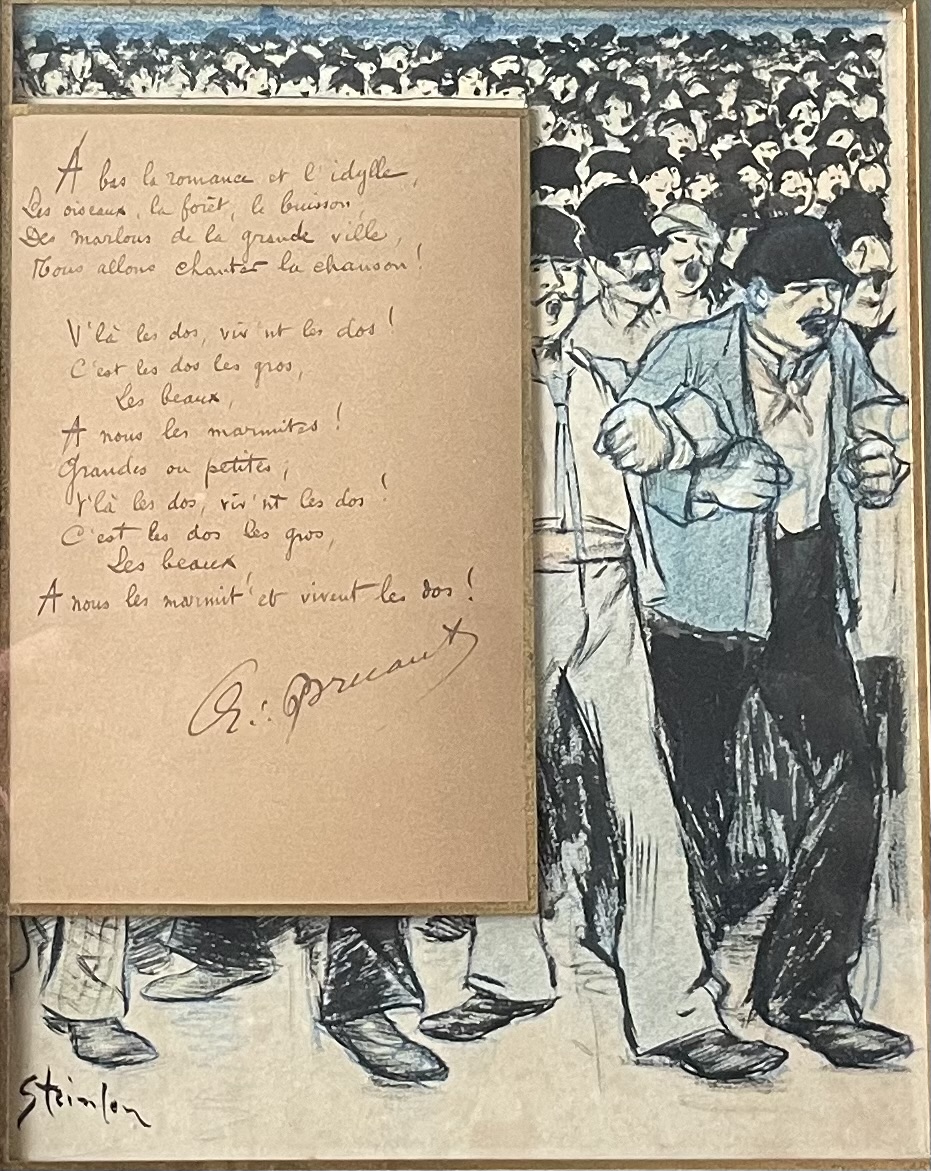 A bas la romance et l'idylle,
Les oiseaux, la forêt, le buisson
Des marlous de la grande ville,
Nous allons chanter la chanson !
V'là les dos, viv'nt les dos !
C'est les dos les gros,
Les beaux,
A nous les marmites !
Grandes ou petites ;
V'là les dos, viv'nt les dos !
C'est les dos les gros,
Les beaux
A nous les marmit' et vivent les dos !
A. Bruant
Steinlen